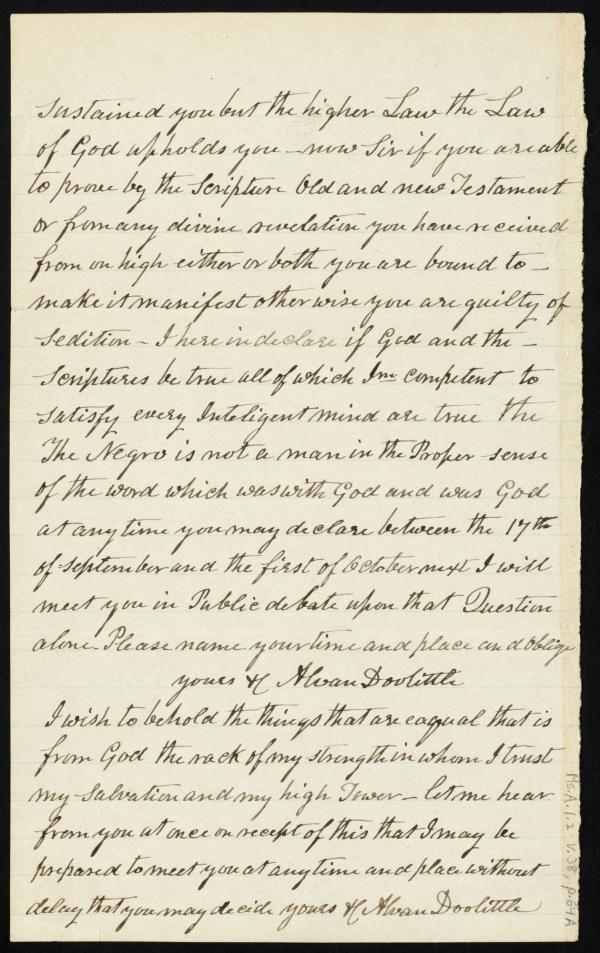 sustained you but the higher Law the Law
of God upholds you - now Sir if you are able
to prove by the Scripture Old and new Testament
or from any divine revelation you have received
from on high either or both you are bound to -
make it manifest otherwise you are guilty of
Sedition - I herein declare if God and the -
Scriptures be true all of which Im competent to
satisfy every Inteligent mind are true the
The Negro is not a man in the Proper sense
of the word which was with God and was God
at any time you may declare between the 17th
of September and the first of October next I will
meet you in Public debate upon that Question
alone. Please name your time and place and oblige
yours &c Alvan Doolittle
I wish to behold the things that are eaqual that is
from God the rack of my strength in whom I trust
my Salvation and my high Tower - let me hear
from you at once on recept of this that I may be
prepared to meet you at any time and place without
delay that you may decide yours &c Alvan Doolittle
Ms.A.1.2 v.38, p.64A